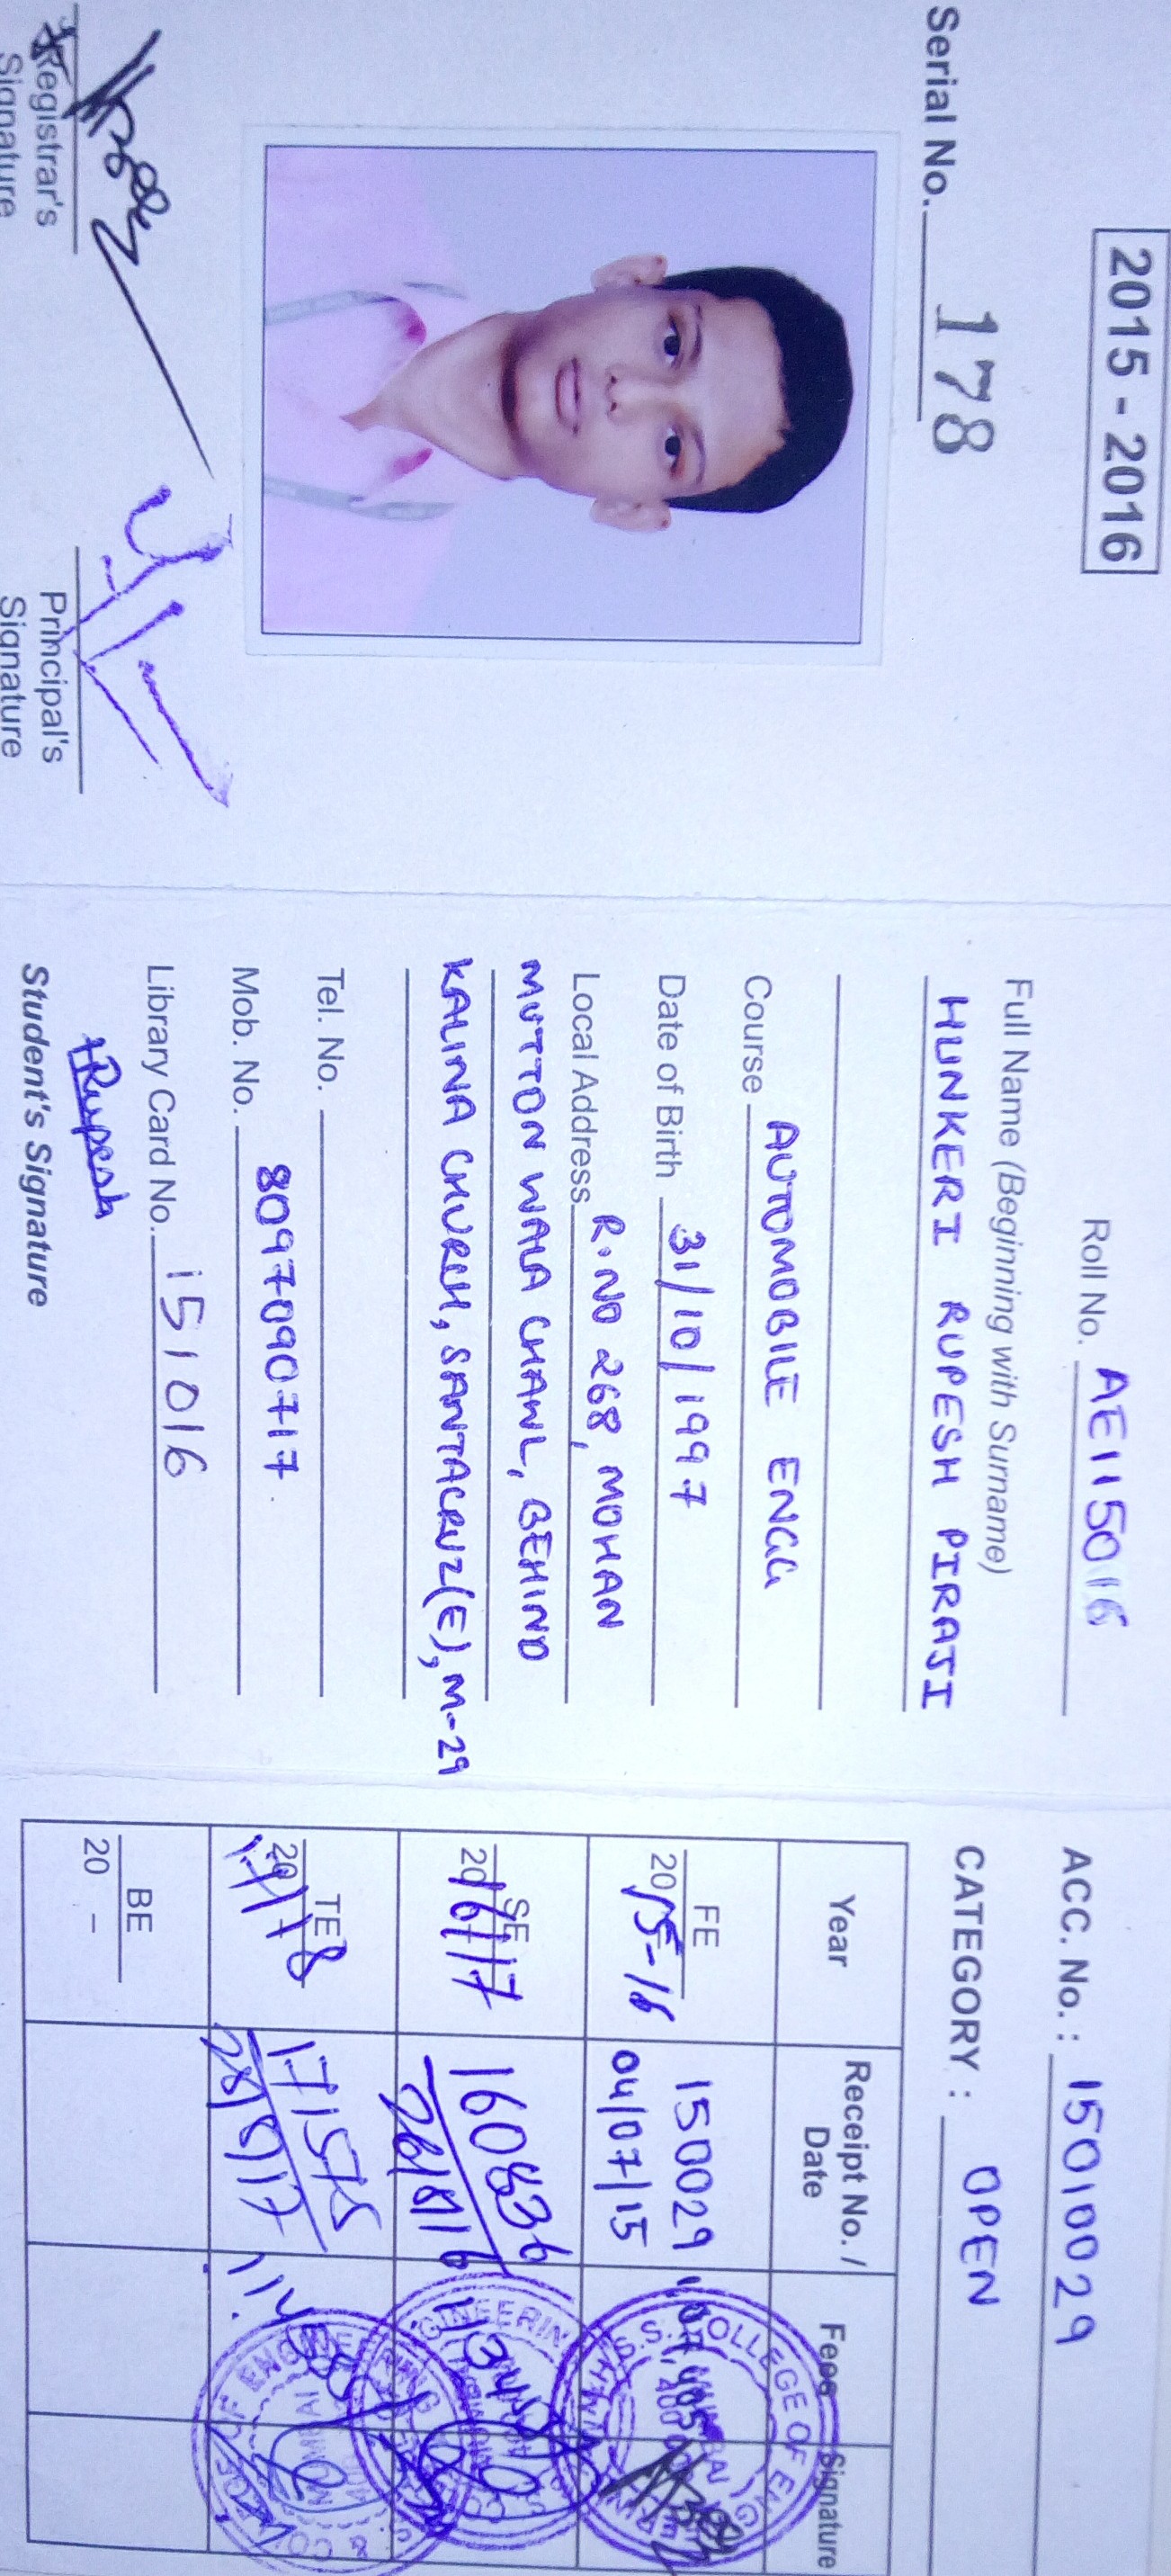 2015 - 2016
Serial No. 178
Registrar's
Signature
Principal's
Signature
Roll No. AE115016
Full Name (Beginning with Surname)
HUNKERI RUPESH PIRAJI
Course AUTOMOBILE ENGG
Date of Birth 31/10/1997
Local Address R.NO 268, MOHAN
MUTTON WALA CHAWL, BEHIND
KALINA CHURCH, SANTACRUZ(E), M-29
Tel. No.
Mob. No. 8097090717
Library Card No. 151016
Rupesh
Student's Signature
ACC. No. : 15010029
CATEGORY : OPEN
Year Receipt No. / Date Fees Signature
FE
2015-16
150029
04/07/15
SE
2016/17
160836
26/8/16
TE
2017/18
171575
28/5/17
BE
20 -
COLLEGE OF